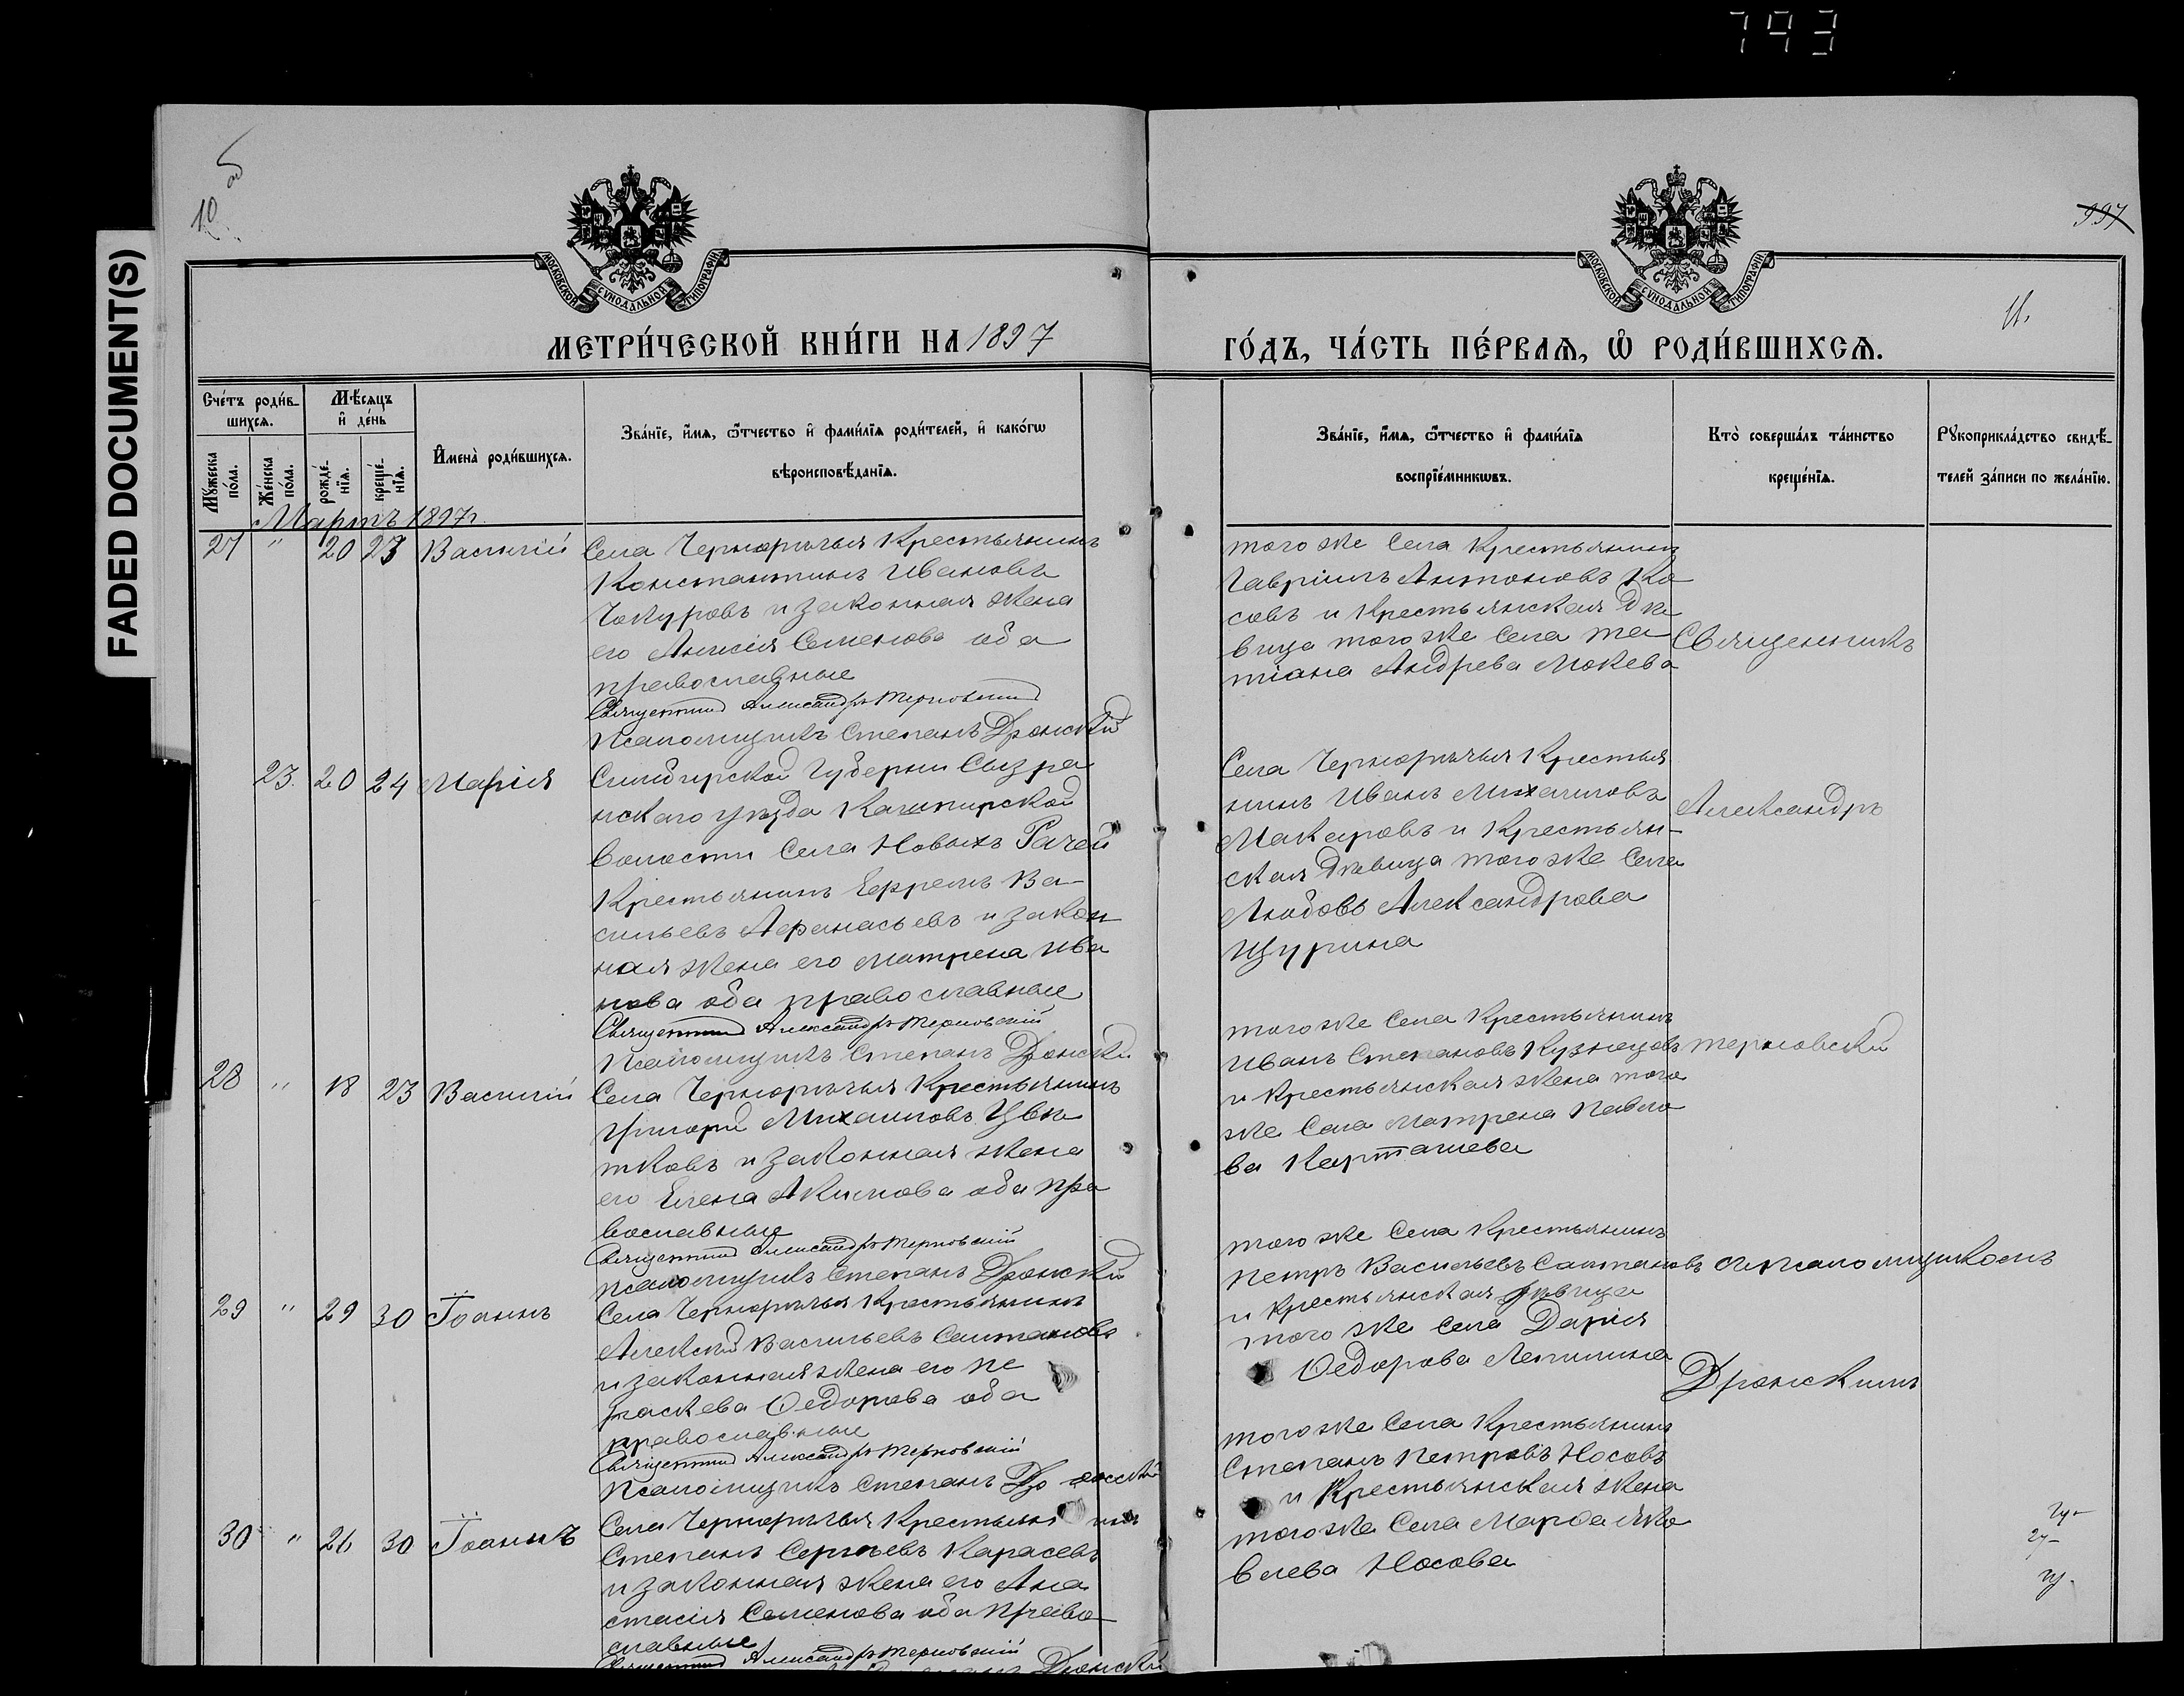 793
FADED DOCUMENT(S)
10
об
997
11.
МОСКОВСКОЙ СѴНОДАЛЬНОЙ ТИПОГРАФІИ
МОСКОВСКОЙ СѴНОДАЛЬНОЙ ТИПОГРАФІИ
МЕТРИ́ЧЕСКОЙ КНИ́ГИ НА 1897
ГО́ДЪ, ЧА́СТЬ ПЕ́РВАЯ, Ѡ РОДИ́ВШИХСЯ.
Сче́тъ роди́в-
шихся.
Мꙋжеска по́ла.
Же́нска по́ла.
Мѣ́сяцъ
и де́нь
рожде́-нїя.
креще́-нїя.
Имена̀ роди́вшихся.
Зва́нїе, и́мя, ѻ҆́тчество и фами́лїя роди́телей, и како́гѡ
вѣроисповѣ́данїя.
Зва́нїе, и́мя, ѻ҆́тчество и фами́лїя
воспрїе́мникѡвъ.
Кто̀ соверша́лъ та́инство
креще́нїя.
Рꙋкоприкла́дство свидѣ́-
телей за́писи по жела́нїю.
Мартъ 1897г.
27 " 20 23 Василій
Села Чернорѣчья Крестьянинъ
Константинъ Ивановъ
Чокуровъ и законная жена
его Анисія Семенова оба
православные
Священникъ Александръ Терновскій
Псаломщикъ Степанъ Дронскій
того же Села Крестьянинъ
Гавріилъ Антоновъ Ко
совъ и Крестьянская Дѣ
вица того же Села Та-
тіана Андрева Мокева
Священникъ
23. 20 24 Марія
Симбирской Губерни Сызра
нскаго уѣзда Кашпирской
Волости Села Новыхъ Рачей
Крестьянинъ Ефремъ Ва-
сильевъ Афанасьевъ и закон
ная жена его Матрена Ива
нова оба православные
Священникъ Александръ Терновскій
Псаломщикъ Степанъ Дронскій
Села Чернорѣчья Крестья
нинъ Иванъ Михаиловъ
Макаровъ и Крестьян-
ская Дѣвица того же Села
Любовь Александрова
Щурина
Александръ
28 " 18 23 Василій
Села Чернорѣчья Крестьянинъ
Григорій Михаиловъ Цвѣ
тковъ и законная жена
его Елена Акимова оба пра
вославные
Священникъ Александръ Терновскій
псаломщикъ Степанъ Дронскій
того же Села Крестьянинъ
Иванъ Степановъ Кузнецовъ
и Крестьянская жена того
же Села Матрена Павло
ва Карташева
Терновскій
29 " 29 30 Іоаннъ
Села Чернорѣчья Крестьянинъ
Алексѣй Васильевъ Салтановъ
и законная жена его Па
раскева Ѳедорова оба
православные
Священникъ Александръ Терновскій
Псаломщикъ Степанъ Дронскій
того же Села Крестьянинъ
Петръ Васильевъ Салтановъ
и Крестьянская дѣвица
того же Села Дарія
Ѳедорова Лепилина
съ псаломщикомъ
Дронскимъ
30 " 26 30 Іоаннъ
Села Чернорѣчья Крестьянинъ
Степанъ Сергѣевъ Карасевъ
и законная жена его Ана
стасія Семенова оба Право-
славные
Священникъ Александръ Терновскій
Дронскій
того же Села Крестьянинъ
Степанъ Петровъ Носовъ
и Крестьянская жена
того же Села Марѳа Яко
влева Носова